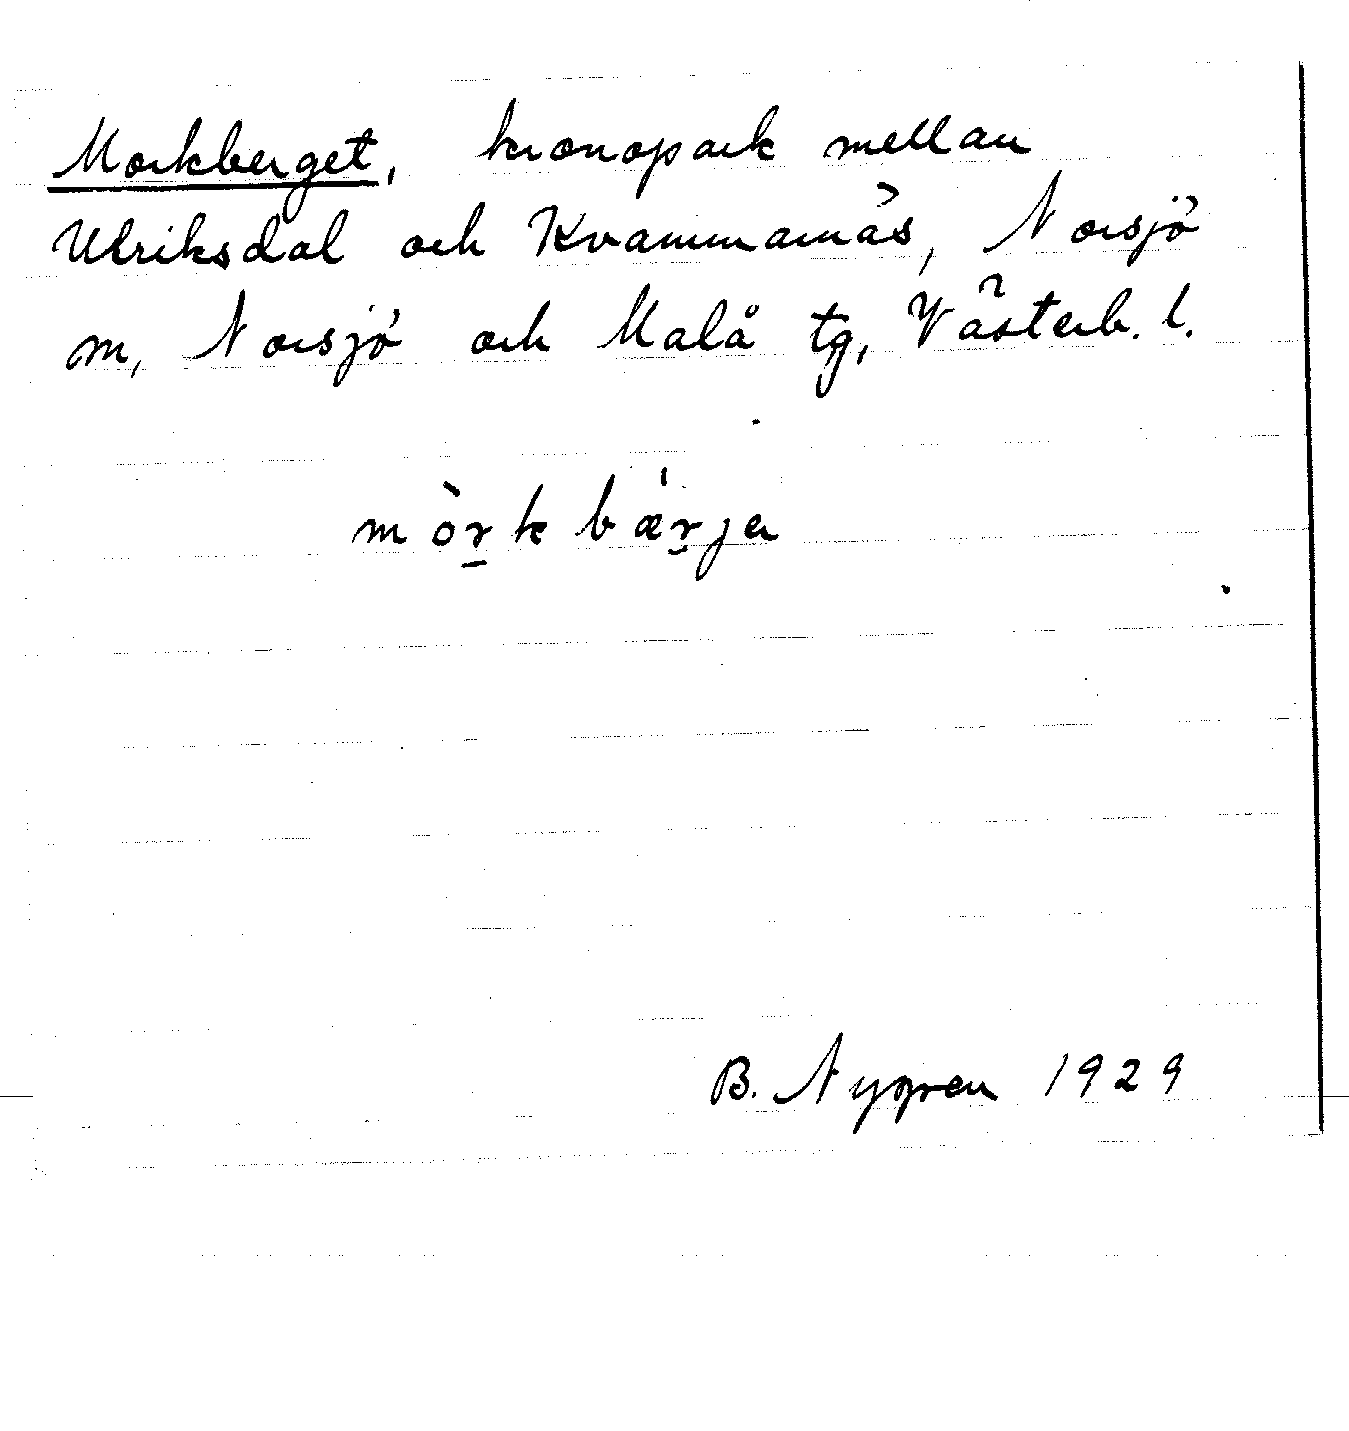 Morkberget, kronopark mellan
Ulriksdal och Kvammarnäs, Norsjö
m, Norsjö och Malå tg, Västerb. l.
mòr̠k bǽr̠ja
B. Nygren 1929